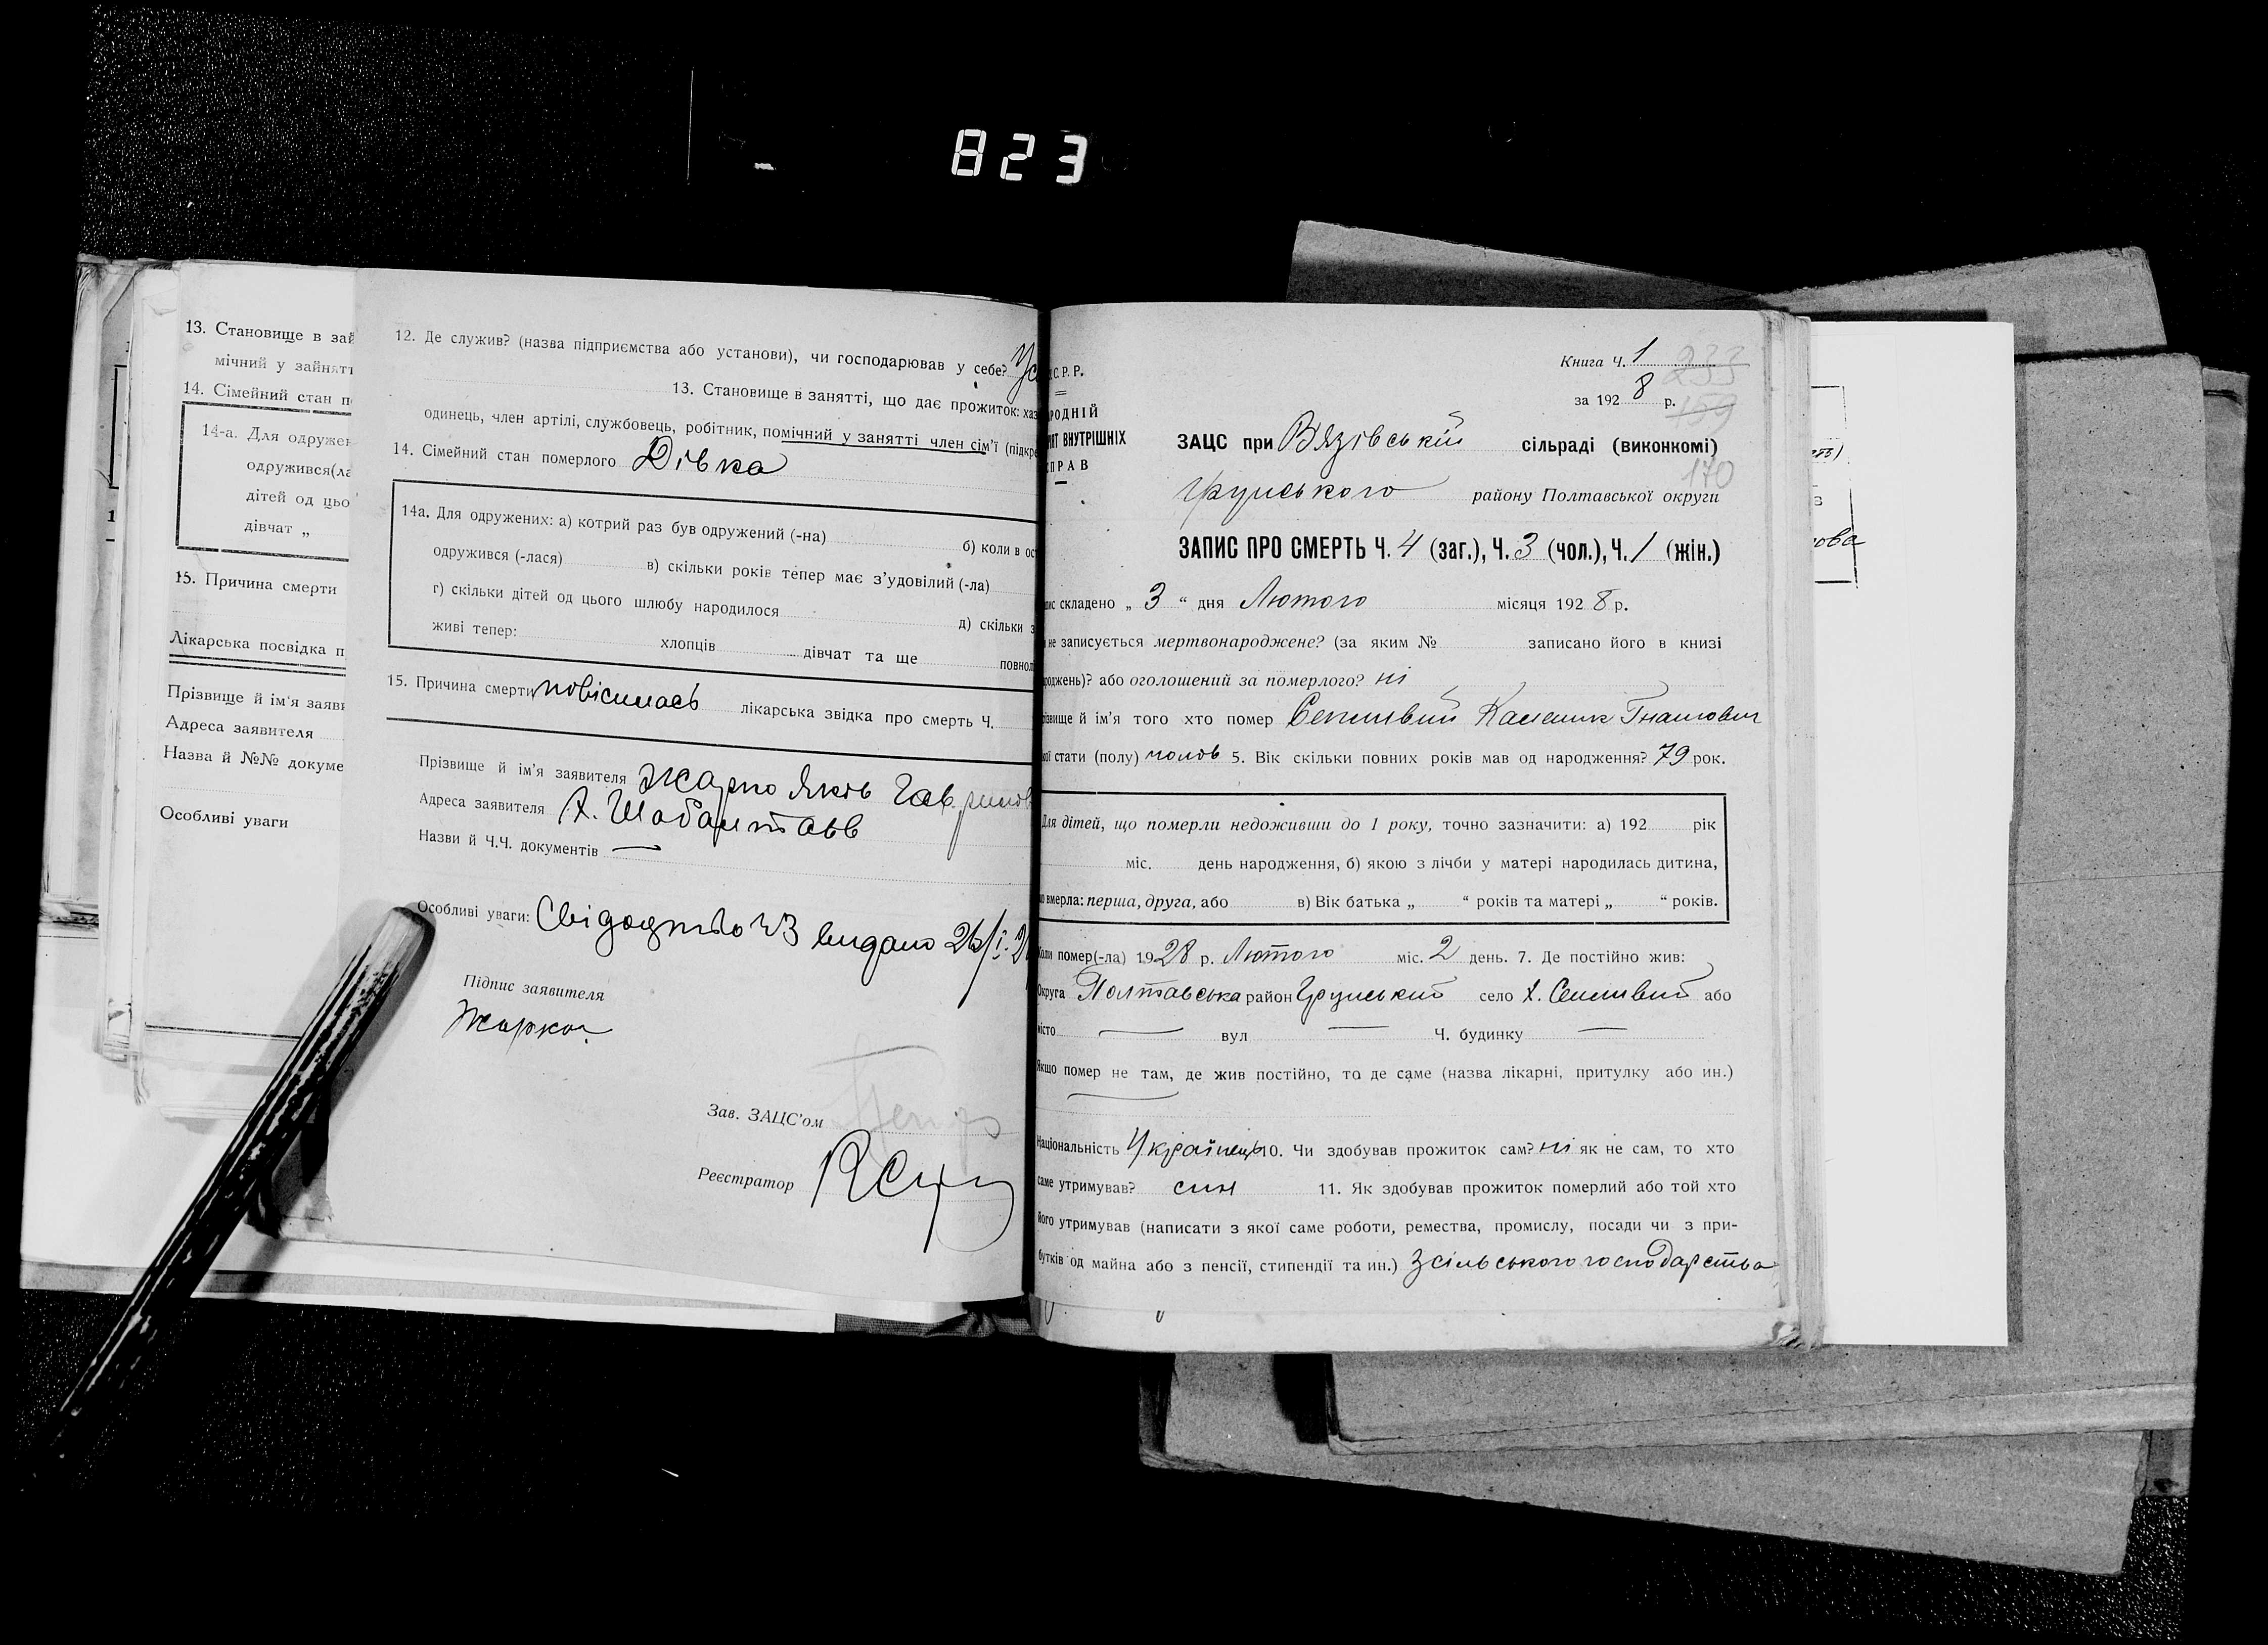 823
13. Становище в зай
мічний у зайнятт
14. Сімейний стан п
14-а. Для одружен
одружився(ла
дітей од цьо
дівчат „
15. Причина смерти
Лікарська посвідка п
Прізвище й ім'я заяви
Адреса заявителя
Назва й №№ докуме
Особливі уваги
12. Де служив? (назва підприємства або установи), чи господарював у себе? Ус
13. Становище в занятті, що дає прожиток: хаз
одинець, член артілі, службовець, робітник, помічний у занятті член сім'ї (підкре
14. Сімейний стан померлого Дівка
14а. Для одружених: а) котрий раз був одружений (-на) б) коли в ост
одружився (-лася) в) скільки років тепер має з'удовілий (-ла)
г) скільки дітей од цього шлюбу народилося д) скільки з
живі тепер: хлопців дівчат та ще повнол
15. Причина смерти повісилась лікарська звідка про смерть Ч.
Прізвище й ім'я заявителя Жарко Яків
Адреса заявителя Х.
Назви й Ч.Ч. документів —
Особливі уваги: Свідоцтво ч3 видано 26/I.2
Підпис заявителя
Жарко
Зав. ЗАЦС'ом
Реєстратор
С.Р.Р.
РОДНІЙ
ЯТ ВНУТРІШНІХ
ПРАВ
Книга ч. 1 233
за 1928 р. 159
ЗАЦС при Вязівській сільраді (виконкомі)
170
Грунського району Полтавської округи
ЗАПИС ПРО СМЕРТЬ Ч. 4 (заг.), Ч. 3 (чол.), Ч. 1 (жін.)
пис складено „ 3 “ дня Лютого місяця 1928 р.
не записується мертвонароджене? (за яким № записано його в книзі
роджень)? або оголошений за померлого? ні
різвище й ім'я того хто помер Сепливий Каленик Гнатович
кої стати (полу) чолов 5. Вік скільки повних років мав од народження? 79 рок.
Для дітей, що померли недоживши до 1 року, точно зазначити: а) 192 рік
міс. день народження, б) якою з лічби у матері народилась дитина,
о вмерла: перша, друга, або в) Вік батька „ “ років та матері „ “ років.
Коли помер(-ла) 1928 р. Лютого міс. 2 день. 7. Де постійно жив:
Округа Полтавська район Грунський село х. Сепливий або
місто — вул — Ч. будинку —
Якщо помер не там, де жив постійно, то де саме (назва лікарні, притулку або ин.)
—
Національність Українець 10. Чи здобував прожиток сам? ні як не сам, то хто
саме утримував? син 11. Як здобував прожиток померлий або той хто
його утримував (написати з якої саме роботи, ремества, промислу, посади чи з при-
бутків од майна або з пенсії, стипендії та ин.) З сільського господарства